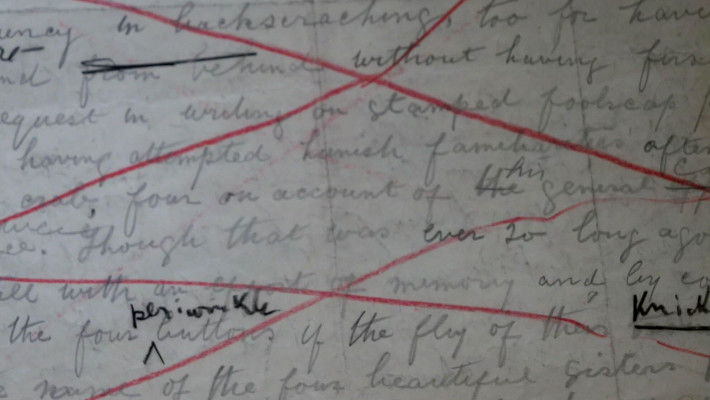 ency in backscratching, too for havi
nd from behind without having firs
equest in writing on stamped foolscap
having attempted hanish familiarities after
crab, four on account of the his general
ce. Though that was ever so long ago
ell with an effort of memory and by co
the four periwinkle buttons of the fly of this Knick
name of the four beautiful sisters